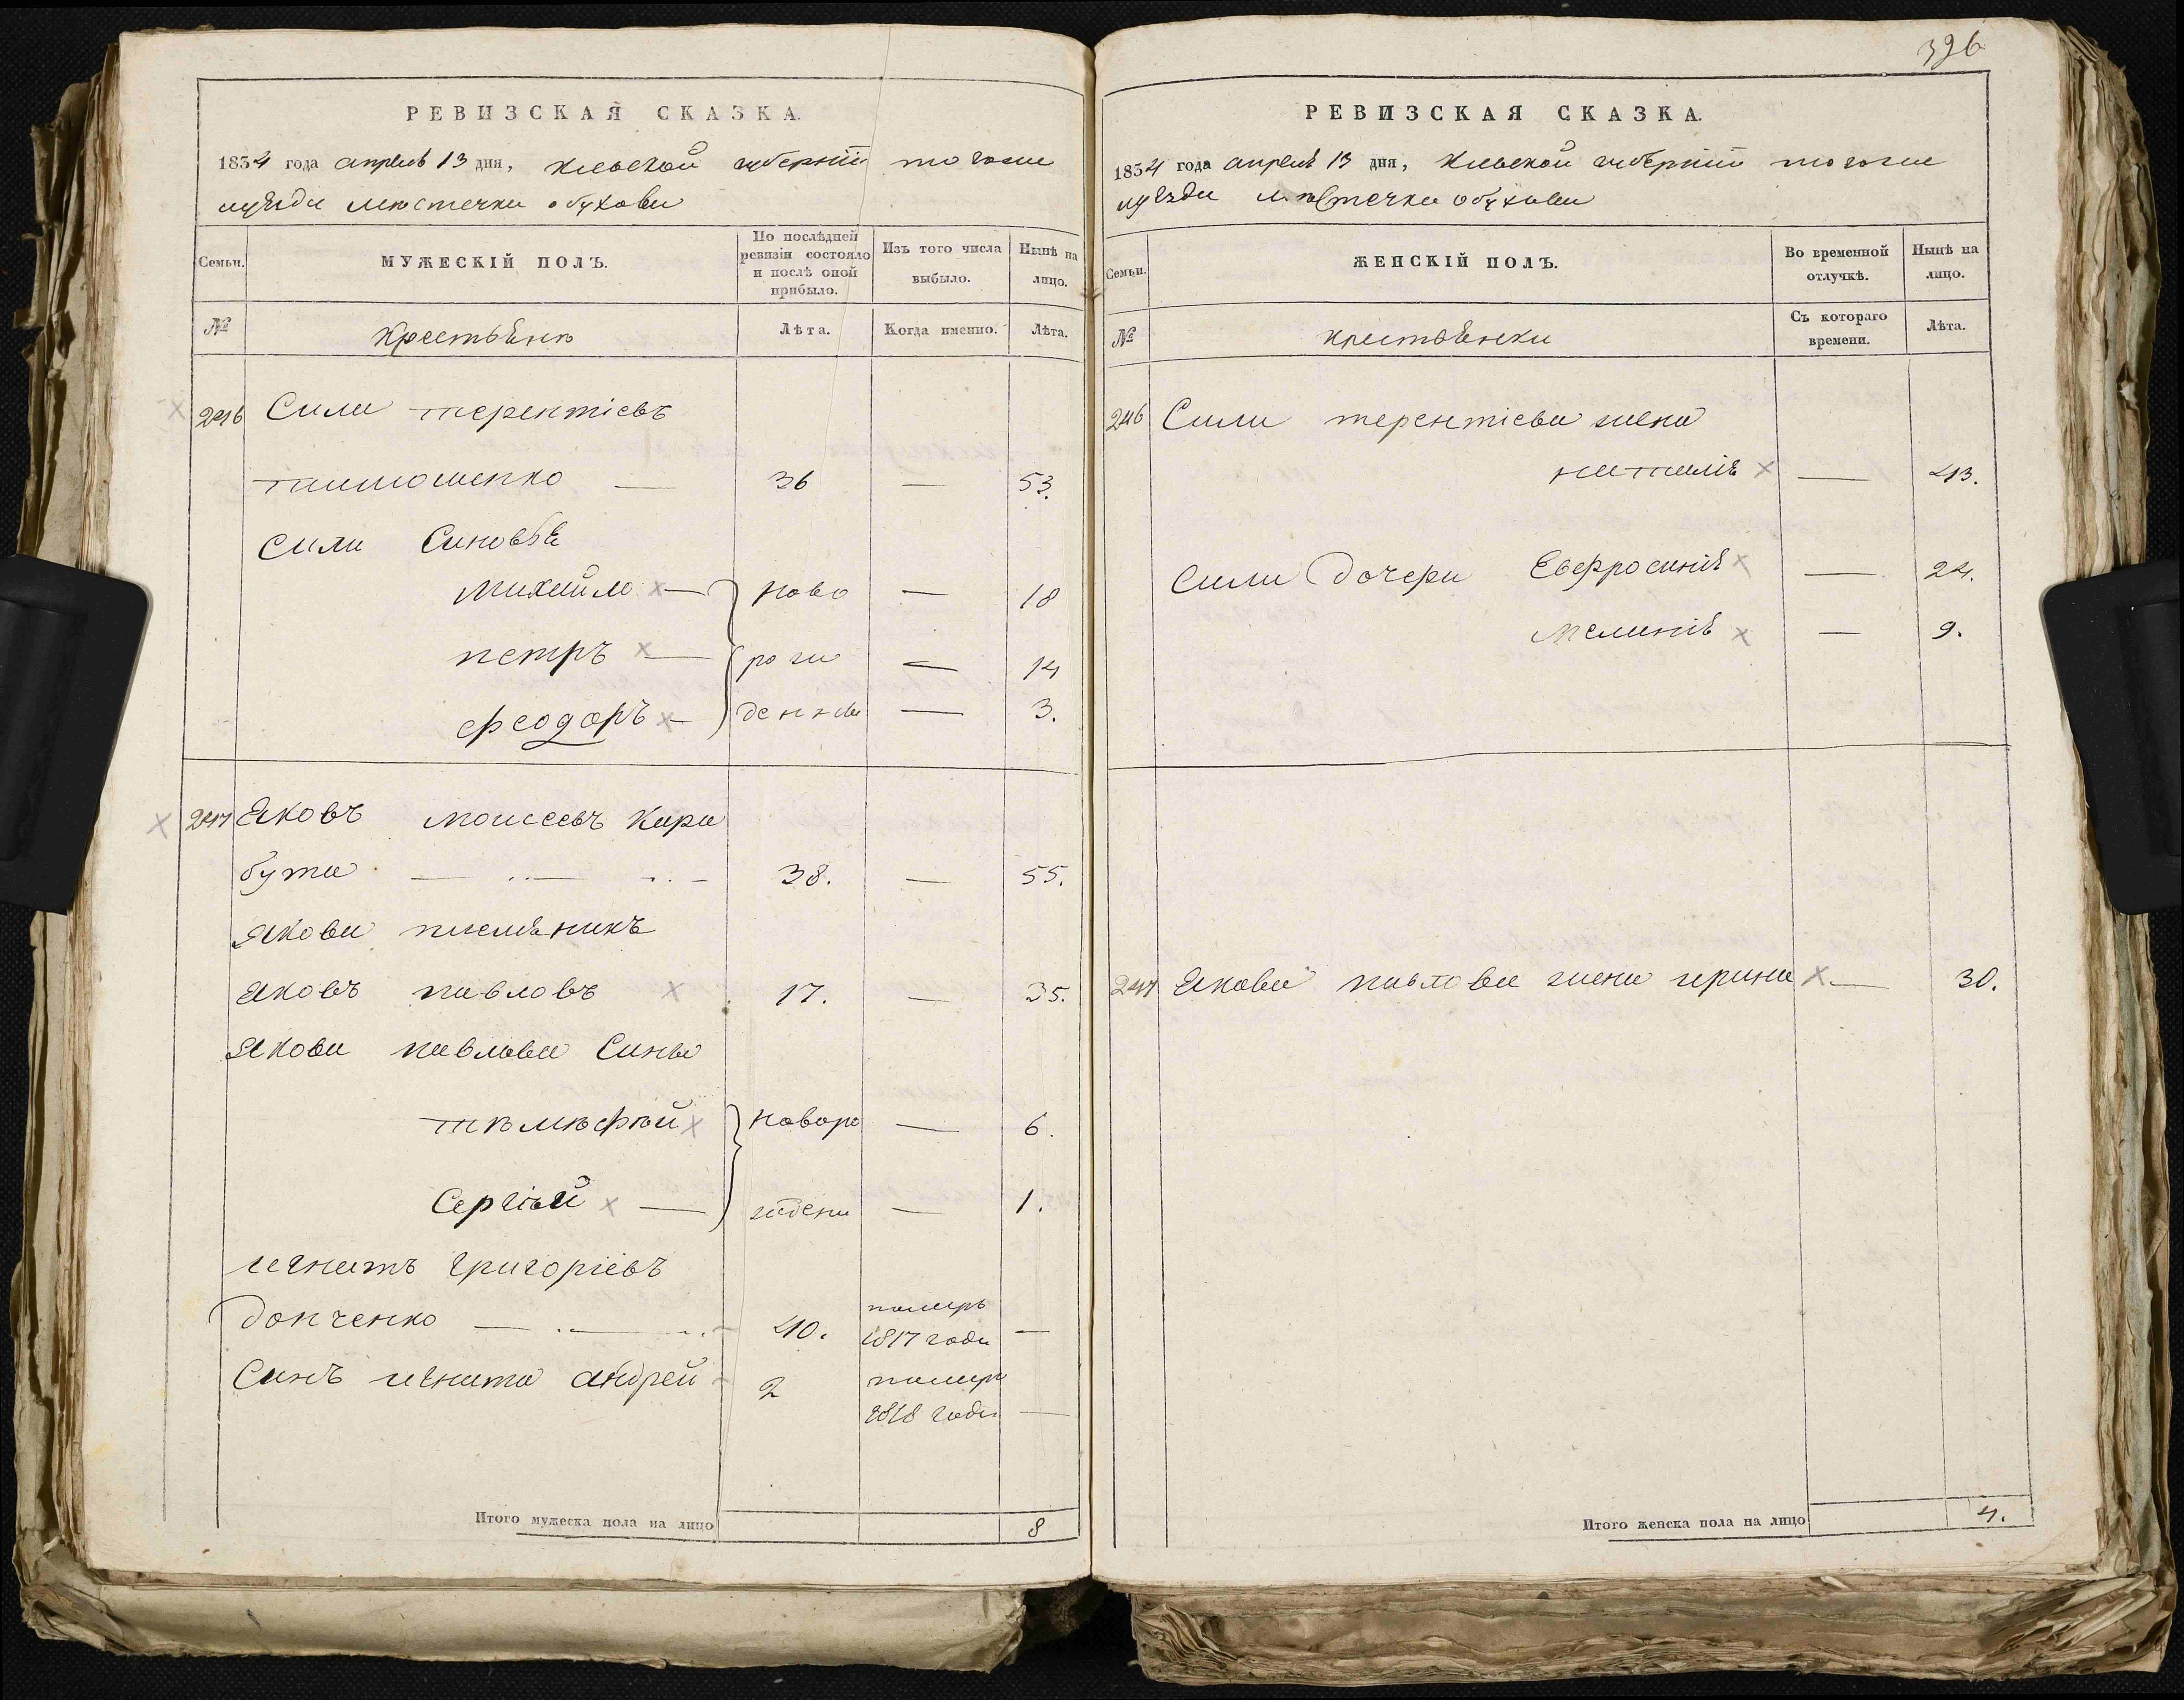 РЕВИЗСКАЯ СКАЗКА.
1834 года апреля 13 дня, Киевской губернии того же
уезда местечка обухова
Семьи.
МУЖЕСКІЙ ПОЛЪ.
По послѣдней ревизіи состояло и послѣ оной прибыло.
Изъ того числа выбыло.
Нынѣ на лицо.
№
Крестьяне
Лѣта.
Когда именно.
Лѣта.
246 Сила терентіевъ
тимошенко — 36 — 53.
Сили Синовья
михайло — ново — 18
петръ — рож — 14
феодоръ — денни — 3.
247 Яковъ моисеевъ Кара
бута — 38. — 55.
Якова племяникъ
Яковъ павловъ 17. — 35.
Якова павлова Сины
тимофей новоро — 6.
Сергій — ждени — 1.
игнатъ григоріевъ
донченко — 40. помиръ 1817 года —
Синъ игната андрей 2 помиръ 1818 года —
Итого мужеска пола на лицо 8
396
РЕВИЗСКАЯ СКАЗКА.
1834 года апреля 13 дня, Киевской губерніи того же
уезда местечка обухова
Семьи.
ЖЕНСКІЙ ПОЛЪ.
Во временной отлучкѣ.
Нынѣ на лицо.
№
крестьянки
Съ котораго времени.
Лѣта.
246 Сили терентіева жена
наталія — 43.
Сили дочери Евфросинія — 24.
меланія — 9.
247 Якова павлова жена ирина — 30.
Итого женска пола на лицо 4.